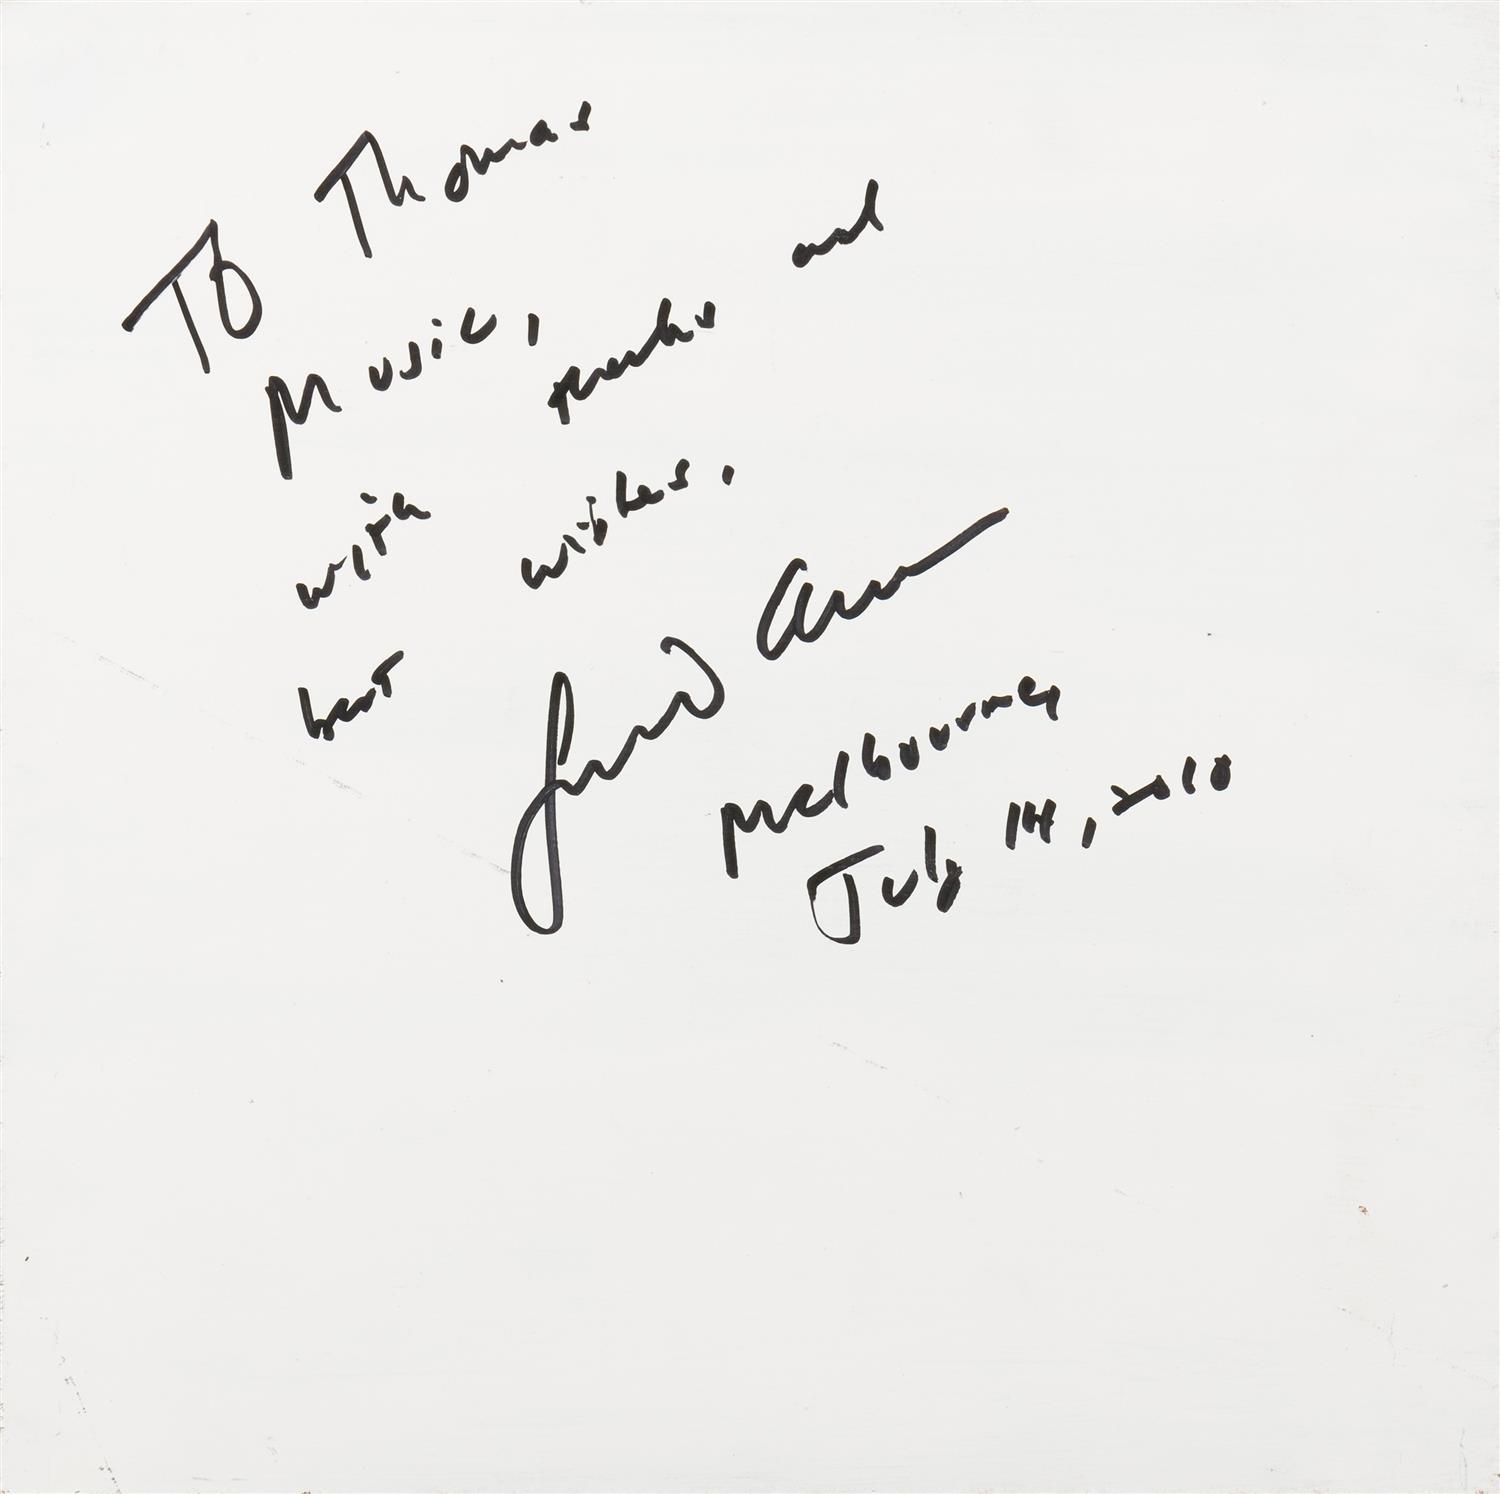 To Thomas
Music,
with thanks and
best wishes,
Melbourne,
July 14, 2010